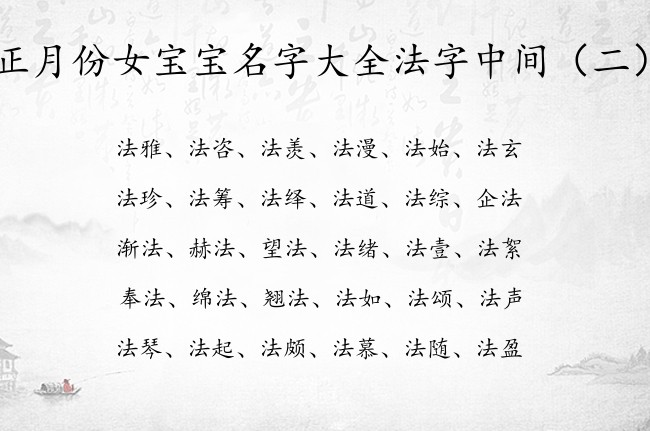 正月份女宝宝名字大全法字中间（二）
法雅、法咨、法羡、法漫、法始、法玄
法珍、法筹、法绎、法道、法综、企法
渐法、赫法、望法、法绪、法壹、法絮
奉法、绵法、翘法、法如、法颂、法声
法琴、法起、法颇、法慕、法随、法盈